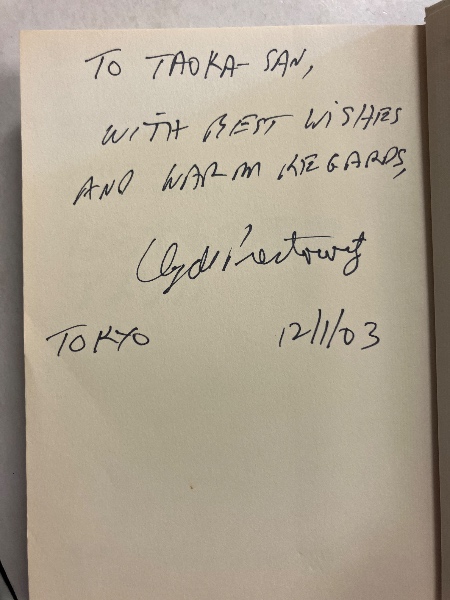 TO TAOKA-SAN,
WITH BEST WISHES
AND WARM REGARDS,
Clyde Prestowitz
TOKYO 12/1/03